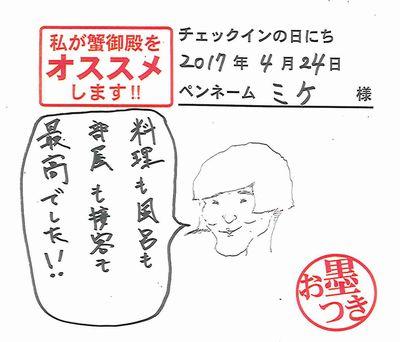 私が蟹御殿を
オススメ
します!!
チェックインの日にち
2017年4月24日
ペンネーム ミケ 様
料理も風呂も
部屋も接客も
最高でした!!
お墨つき